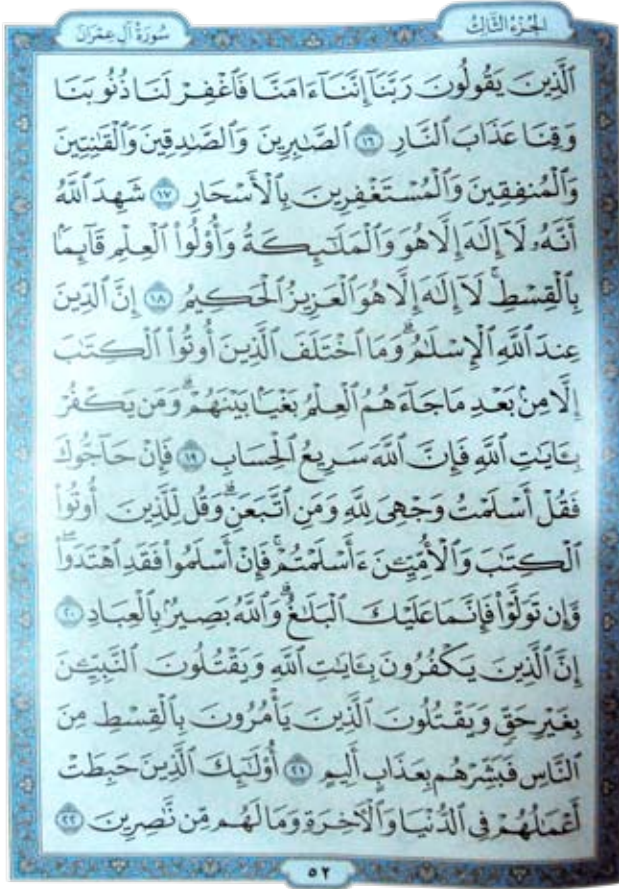 الجُزْءُ الثَّالِثُ
سُورَةُ آلِ عِمْرَانَ
ٱلَّذِينَ يَقُولُونَ رَبَّنَآ إِنَّنَآ ءَامَنَّا فَٱغْفِرْ لَنَا ذُنُوبَنَا
وَقِنَا عَذَابَ ٱلنَّارِ ١٦ ٱلصَّٰبِرِينَ وَٱلصَّٰدِقِينَ وَٱلْقَٰنِتِينَ
وَٱلْمُنفِقِينَ وَٱلْمُسْتَغْفِرِينَ بِٱلْأَسْحَارِ ١٧ شَهِدَ ٱللَّهُ
أَنَّهُۥ لَآ إِلَٰهَ إِلَّا هُوَ وَٱلْمَلَٰٓئِكَةُ وَأُو۟لُوا۟ ٱلْعِلْمِ قَآئِمًۢا
بِٱلْقِسْطِ ۚ لَآ إِلَٰهَ إِلَّا هُوَ ٱلْعَزِيزُ ٱلْحَكِيمُ ١٨ إِنَّ ٱلدِّينَ
عِندَ ٱللَّهِ ٱلْإِسْلَٰمُ ۗ وَمَا ٱخْتَلَفَ ٱلَّذِينَ أُوتُوا۟ ٱلْكِتَٰبَ
إِلَّا مِنۢ بَعْدِ مَا جَآءَهُمُ ٱلْعِلْمُ بَغْيًۢا بَيْنَهُمْ ۗ وَمَن يَكْفُرْ
بِـَٔايَٰتِ ٱللَّهِ فَإِنَّ ٱللَّهَ سَرِيعُ ٱلْحِسَابِ ١٩ فَإِنْ حَآجُّوكَ
فَقُلْ أَسْلَمْتُ وَجْهِىَ لِلَّهِ وَمَنِ ٱتَّبَعَنِ ۗ وَقُل لِّلَّذِينَ أُوتُوا۟
ٱلْكِتَٰبَ وَٱلْأُمِّيِّـۧنَ ءَأَسْلَمْتُمْ ۚ فَإِنْ أَسْلَمُوا۟ فَقَدِ ٱهْتَدَوا۟ ۖ
وَّإِن تَوَلَّوْا۟ فَإِنَّمَا عَلَيْكَ ٱلْبَلَٰغُ ۗ وَٱللَّهُ بَصِيرٌۢ بِٱلْعِبَادِ ٢٠
إِنَّ ٱلَّذِينَ يَكْفُرُونَ بِـَٔايَٰتِ ٱللَّهِ وَيَقْتُلُونَ ٱلنَّبِيِّـۧنَ
بِغَيْرِ حَقٍّ وَيَقْتُلُونَ ٱلَّذِينَ يَأْمُرُونَ بِٱلْقِسْطِ مِنَ
ٱلنَّاسِ فَبَشِّرْهُم بِعَذَابٍ أَلِيمٍ ٢١ أُو۟لَٰٓئِكَ ٱلَّذِينَ حَبِطَتْ
أَعْمَٰلُهُمْ فِى ٱلدُّنْيَا وَٱلْءَاخِرَةِ وَمَا لَهُم مِّن نَّٰصِرِينَ ٢٢
٥٢